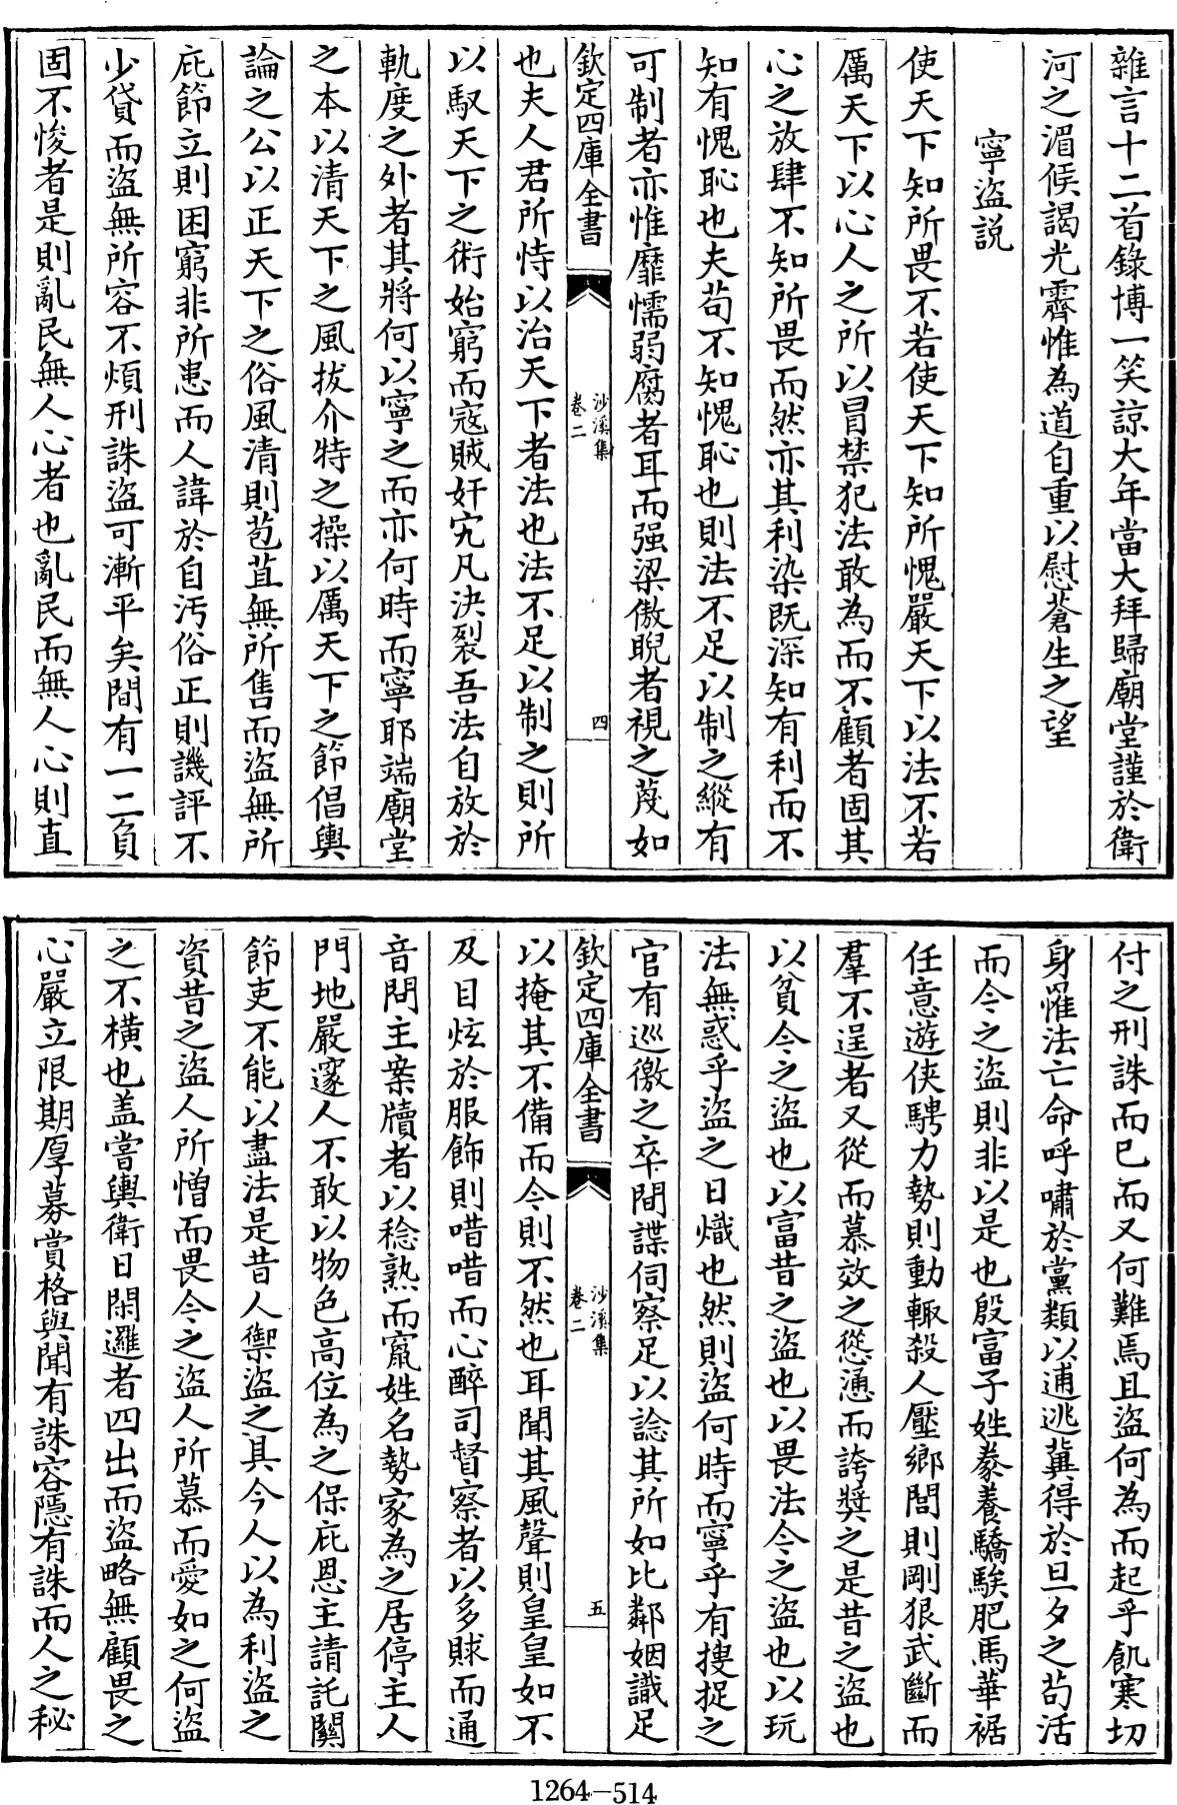 雜言十二首錄博一笑諒大年當大拜歸廟堂謹於衛
河之湄候謁光霽惟為道自重以慰蒼生之望
寧盜説
使天下知所畏不若使天下知所愧嚴天下以法不若
厲天下以心人之所以冒禁犯法敢為而不顧者固其
心之放肆不知所畏而然亦其利染既深知有利而不
知有愧恥也夫苟不知愧恥也則法不足以制之縱有
可制者亦惟靡懦弱腐者耳而强梁傲睨者視之蔑如
欽定四庫全書
沙溪集
卷二
四
也夫人君所恃以治天下者法也法不足以制之則所
以馭天下之術始窮而宼賊奸宄凡決裂吾法自放於
軌度之外者其將何以寧之而亦何時而寧耶端廟堂
之本以清天下之風拔介特之操以厲天下之節倡輿
論之公以正天下之俗風清則苞苴無所售而盜無所
庇節立則困窮非所患而人諱於自汚俗正則譏評不
少貸而盜無所容不煩刑誅盜可漸平矣間有一二負
固不悛者是則亂民無人心者也亂民而無人心則直
付之刑誅而已而又何難焉且盜何為而起乎飢寒切
身罹法亡命呼嘯於黨類以逋逃冀得於旦夕之苟活
而今之盜則非以是也殷富子姓豢養驕騃肥馬華裾
任意遊俠騁力勢則動輒殺人壓鄉閭則剛狠武斷而
羣不逞者又從而慕效之慫慂而誇奬之是昔之盜也
以貧今之盜也以富昔之盜也以畏法今之盜也以玩
法無惑乎盜之日熾也然則盜何時而寧乎有搜捉之
官有巡徼之卒間諜伺察足以諗其所如比鄰姻識足
欽定四庫全書
沙溪集
卷二
五
以掩其不備而今則不然也耳聞其風聲則皇皇如不
及目炫於服飾則唶唶而心醉司督察者以多賕而通
音問主案牘者以稔熟而竄姓名勢家為之居停主人
門地嚴邃人不敢以物色高位為之保庇恩主請託關
節吏不能以盡法是昔人禦盜之具今人以為利盜之
資昔之盜人所憎而畏今之盜人所慕而愛如之何盜
之不横也盖嘗輿衛日閑邏者四出而盜略無顧畏之
心嚴立限期厚募賞格與聞有誅容隱有誅而人之秘
1264—514